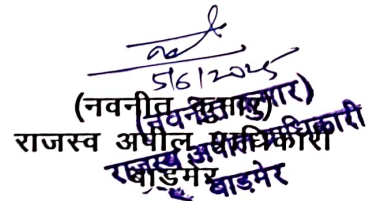 5/6/2025
(नवनीत कुमार)
राजस्व अपील प्राधिकारी
बाड़मेर
(नवनीत कुमार)
राजस्व अपील प्राधिकारी
बाड़मेर